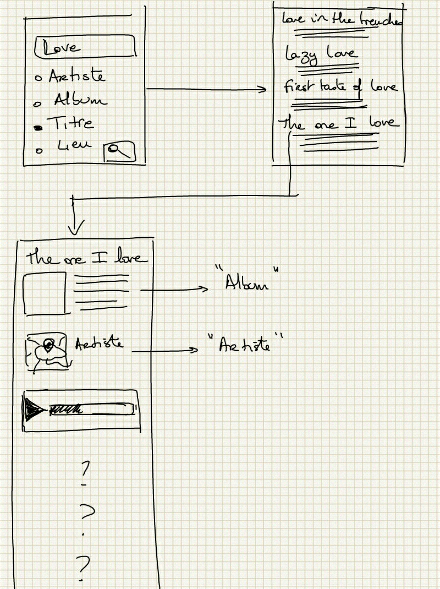 Love
Artiste
Album
Titre
Lieu
Love in the trenches
Lazy Love
First taste of Love
The one I love
The one I love
"Album"
Artiste
"Artiste"
?
?
?